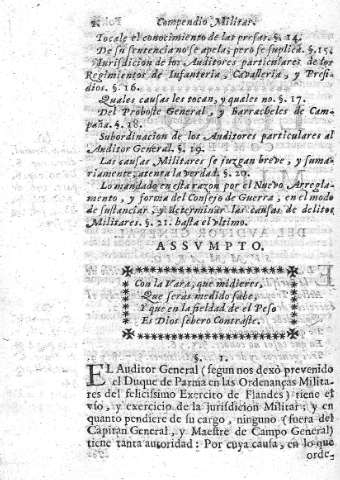 2. Compendio Militar.
Tocale el conocimiento de las presas. §. 14.
De su sentencia no se apela; pero se suplica. §. 15.
Jurisdicion de los Auditores particulares de los
Regimientos de Infanteria, Cavalleria, y Presi-
dios. §. 16.
Quales causas les tocan, y quales no. §. 17.
Del Proboste General, y Barracheles de Cam-
paña. §. 18.
Subordinacion de los Auditores particulares al
Auditor General. §. 19.
Las causas Militares se juzgan breve, y suma-
riamente, atenta la verdad. §. 20.
Lo mandado en esta razon por el Nuevo Arregla-
mento, y forma del Consejo de Guerra, en el modo
de sustanciar, y determinar las causas de delitos
Militares. §. 21. hasta el ultimo.
ASSVMPTO.
Con la Vara, que midieres,
Que seràs medido sabe,
Y que en la fieldad de el Peso
Es Dios sebero Contraste.
§. 1.
EL Auditor General (segun nos dexò prevenido
el Duque de Parma en las Ordenanças Milita-
res del felicissimo Exercito de Flandes) tiene el
vso, y exercicio de la jurisdicion Militar; y en
quanto pendiere de su cargo, ninguno (fuera del
Capitan General, y Maestre de Campo General)
tiene tanta autoridad: Por cuya causa, en lo que
orde-